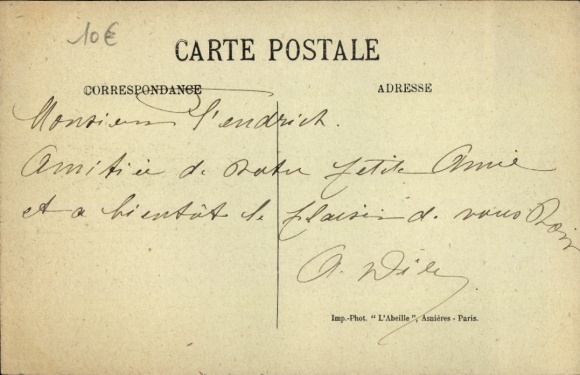 10€
CARTE POSTALE
CORRESPONDANCE
ADRESSE
Monsieur l'endrich.
Amitiée de Votre petite Amie
et a bientôt le plaisir de vous Voir
A.
Imp.-Phot. "L'Abeille", Asnières - Paris.